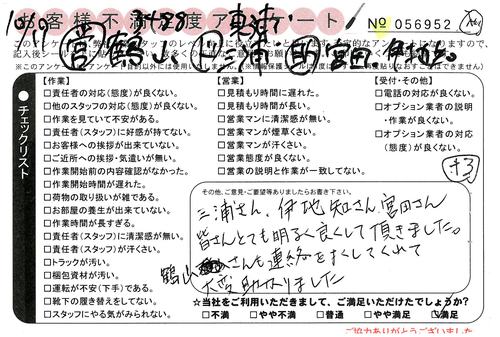 お客様不満度アンケート! No 056952
10/19 3428 東津
営 鶴山 三浦 宮田 伊地知
※このアンケート
チェックリスト
【作業】
□責任者の対応(態度)が良くない。
□他のスタッフの対応(態度)が良くない。
□作業を見ていて不安がある。
□責任者(スタッフ)に好感が持てない。
□お客様への挨拶が出来ていない。
□ご近所への挨拶・気遣いが無い。
□作業開始前の内容確認がなかった。
□作業開始時間が遅れた。
□荷物の取り扱いが雑である。
□お部屋の養生が出来ていない。
□作業時間が長すぎる。
□責任者(スタッフ)に清潔感が無い。
□責任者(スタッフ)が汗くさい。
□トラックが汚い。
□梱包資材が汚い。
□運転が不安(下手)である。
□靴下の履き替えをしてない。
□スタッフにやる気がみられない。
【営業】
□見積もり時間に遅れた。
□見積もり時間が長い。
□営業マンに清潔感が無い。
□営業マンが煙草くさい。
□営業マンが汗くさい。
□営業態度が良くない。
□営業の説明と作業が一致してない。
【受付・その他】
□電話の対応が良くない。
□オプション業者の説明
・作業が良くない。
□オプション業者の対応
(態度)が良くない。
+3
その他、ご意見・ご要望等ありましたらお書き下さい。
三浦さん、伊地知さん、宮田さん
皆さんとても明るく良くして頂きました。
鶴山さんも連絡をすぐしてくれて
大変助かりました
☆当社をご利用いただきまして、ご満足いただけたでしょうか?
□不満 □やや不満 □普通 □やや満足 □満足
ご協力ありがとうございました